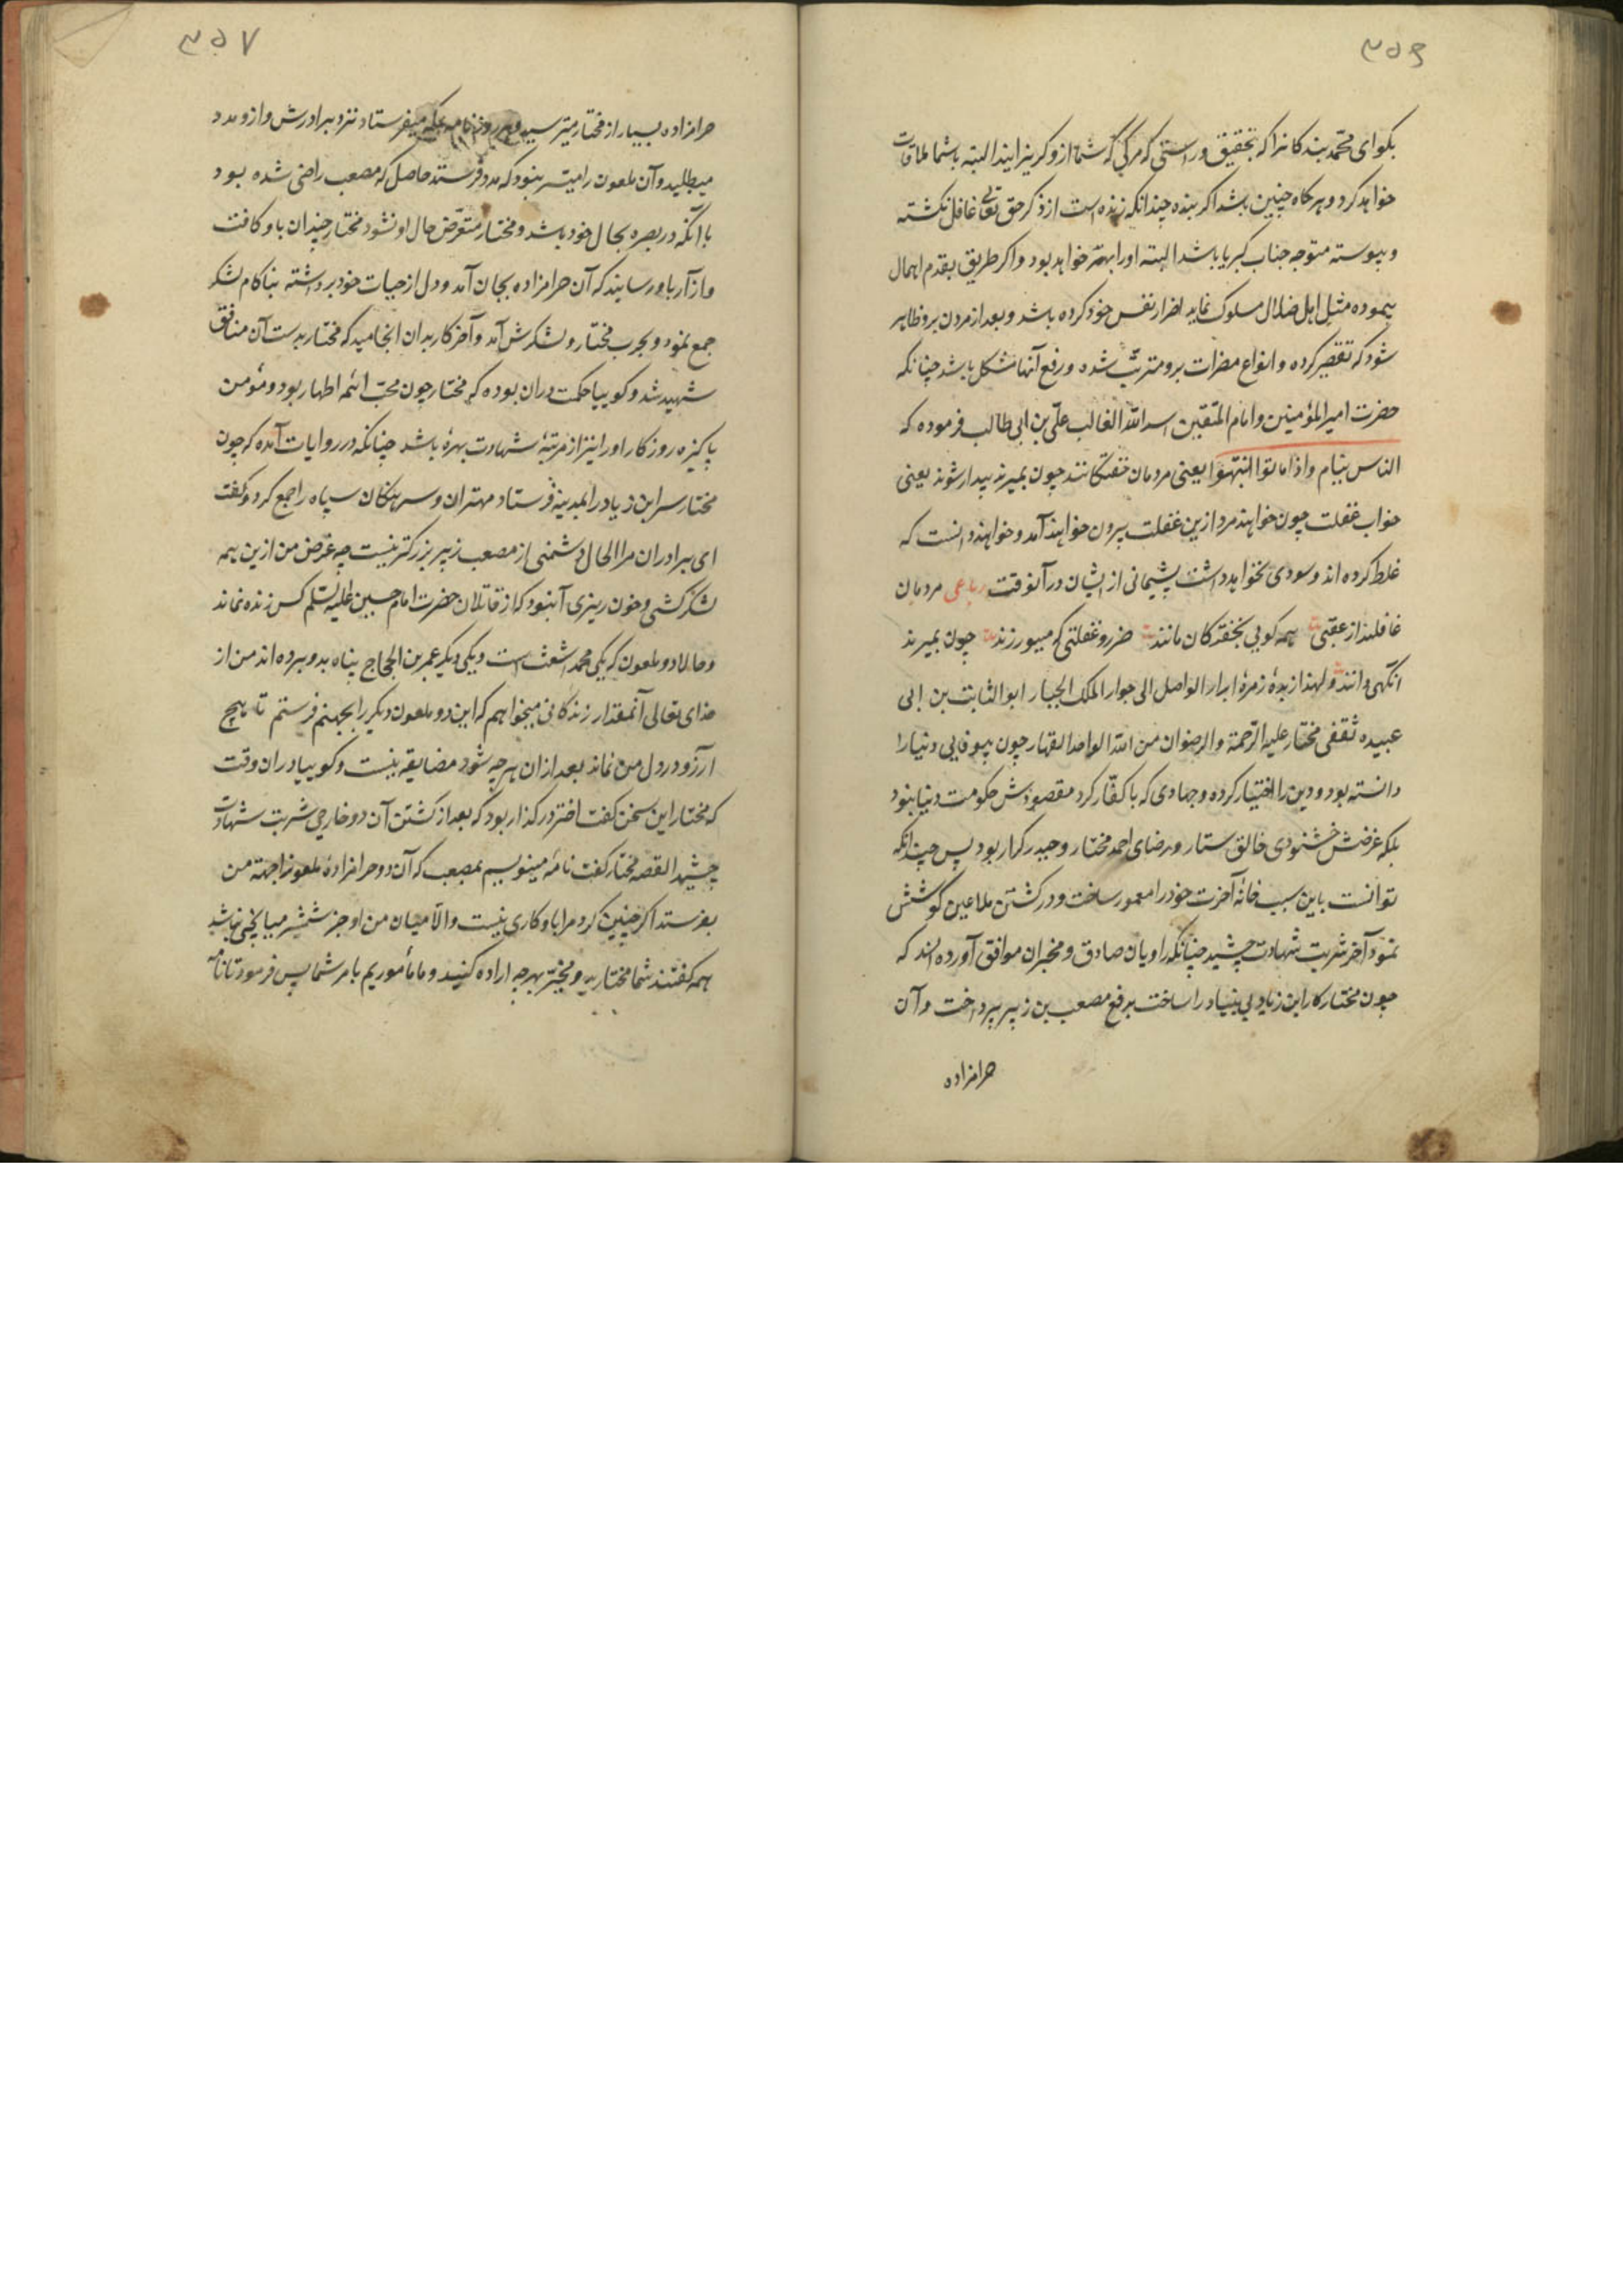 ۳۵۶
بکوای محمد بندکانرا که بتحقیق و راستی که مرکی که شما ازو کریزانیند البته باشما ملاقات
خواهد کرد و هرکاه چنین باشد اکر بنده چندانکه زنده است از ذکر حق تعالی غافل نکشته
و پیوسته متوجه جناب کبریا باشد البته اورا بهتر خواهد بود و اکر طریق بقدم اهمال
پیموده مثل اهل ضلال سلوک نماید اضرار نفس خود کرده باشد و بعد از مردن برو ظاهر
شود که تقصیر کرده و انواع مضرات برو مترتّب شده و رفع آنها مشکل باشد چنانکه
حضرت امیرالمؤمنین و امام المتّقین اسد الله الغالب علیّ بن ابی طالب فرموده که
الناس نیام و اذا ماتوا انتبهوا یعنی مردمان خفتکانند چون بمیرند بیدار شوند یعنی
خواب غفلت چون خواهند مرد ازین غفلت بیرون خواهند آمد و خواهند دانست که
غلط کرده اند و سودی نخواهد داشت پشیمانی از ایشان در آنوقت رباعی مردمان
غافلند از عقبی همه کویی بخفتکان مانند ضرر و غفلتی که میورزند چون بمیرند
انکهی دانند و لهذا زبدهٔ زمرهٔ ابرار الواصل الی جوار الملک الجبار ابو الثابت بن ابی
عبیده ثقفی مختار علیه الرّحمة والرضوان من الله الواحد القهار چون بیوفایی دنیارا
دانسته بود و دین را اختیار کرده و جهادی که با کفّار کرد مقصودش حکومت دنیا نبود
بلکه غرضش خشنودی خالق ستار و رضای احمد مختار و حیدر کرار بود پس چندانکه
توانست باین سبب خانهٔ آخرت خودرا معمور ساخت و در کشتن ملاعین کوشش
نمود آخر شربت شهادت چشید چنانکه راویان صادق و مخبران موافق آورده اند که
چون مختار کار ابن زیاد بی بنیاد را ساخت برفع مصعب بن زبیر پرداخت و آن
حرامزاده
۳۵۷
حرامزاده بسیار از مختار میترسید و هر روز نامه بمکه میفرستاد نزد برادرش و ازو مدد
میطلبید و آن ملعون را میتسر نبود که مدد فرستد حاصل که مصعب راضی شده بود
با آنکه در بصره بحال خود باشد و مختار متعرّض حال او نشود مختار چندان باو کافت
و آزار باو رسانید که آن حرامزاده بجان آمد و دل از حیات خود برداشته بناکام لشکر
جمع نمود و بحرب مختار و لشکرش آمد و آخر کار بدان انجامید که مختار بدست آن منافق
شهید شد و کوییا حکمت دران بوده که مختار چون محبّ ائمه اطهار بود و مؤمن
پاکیزه روزکار اورا نیز از مرتبهٔ شهادت بهره باشد چنانکه در روایات آمده که چون
مختار سر ابن زیاد را بمدینه فرستاد مهتران و سرهنکان سپاه را جمع کرد و کفت
ای برادران مرا الحال دشمنی از مصعب زبیر بزرکتر نیست چه غرض من ازین همه
لشکرکشی و خون ریزی آنبود که از قاتلان حضرت امام حسین علیه السلم کس زنده نماند
و حالا دو ملعون که یکی محمد اشعث است و یکی دیکر عمر بن الحجاج پناه بدو برده اند من از
خدای تعالی آنمقدار زندکانی میخواهم که این دو ملعون دیکر را بجهنم فرستم تا هیچ
آرزو در دل من نماند بعد ازان هرچه شود مضایقه نیست و کوییا دران وقت
که مختار این سخن کفت اختر در کذار بود که بعد از کشتن آن دو خارجی شربت شهادت
چشید القصه مختار کفت نامه مینویسم بمصعب که آن دو حرامزادهٔ ملعونرا جهته من
بفرستد اکر چنین کرد مرا باو کاری نیست و الّا میان من و او جز شمشیر میانجی نباشد
همه کفتند شما مختارید و مخیّر بهرچه اراده کنید و ما مأموریم بامر شما پس فرمود تا نامه